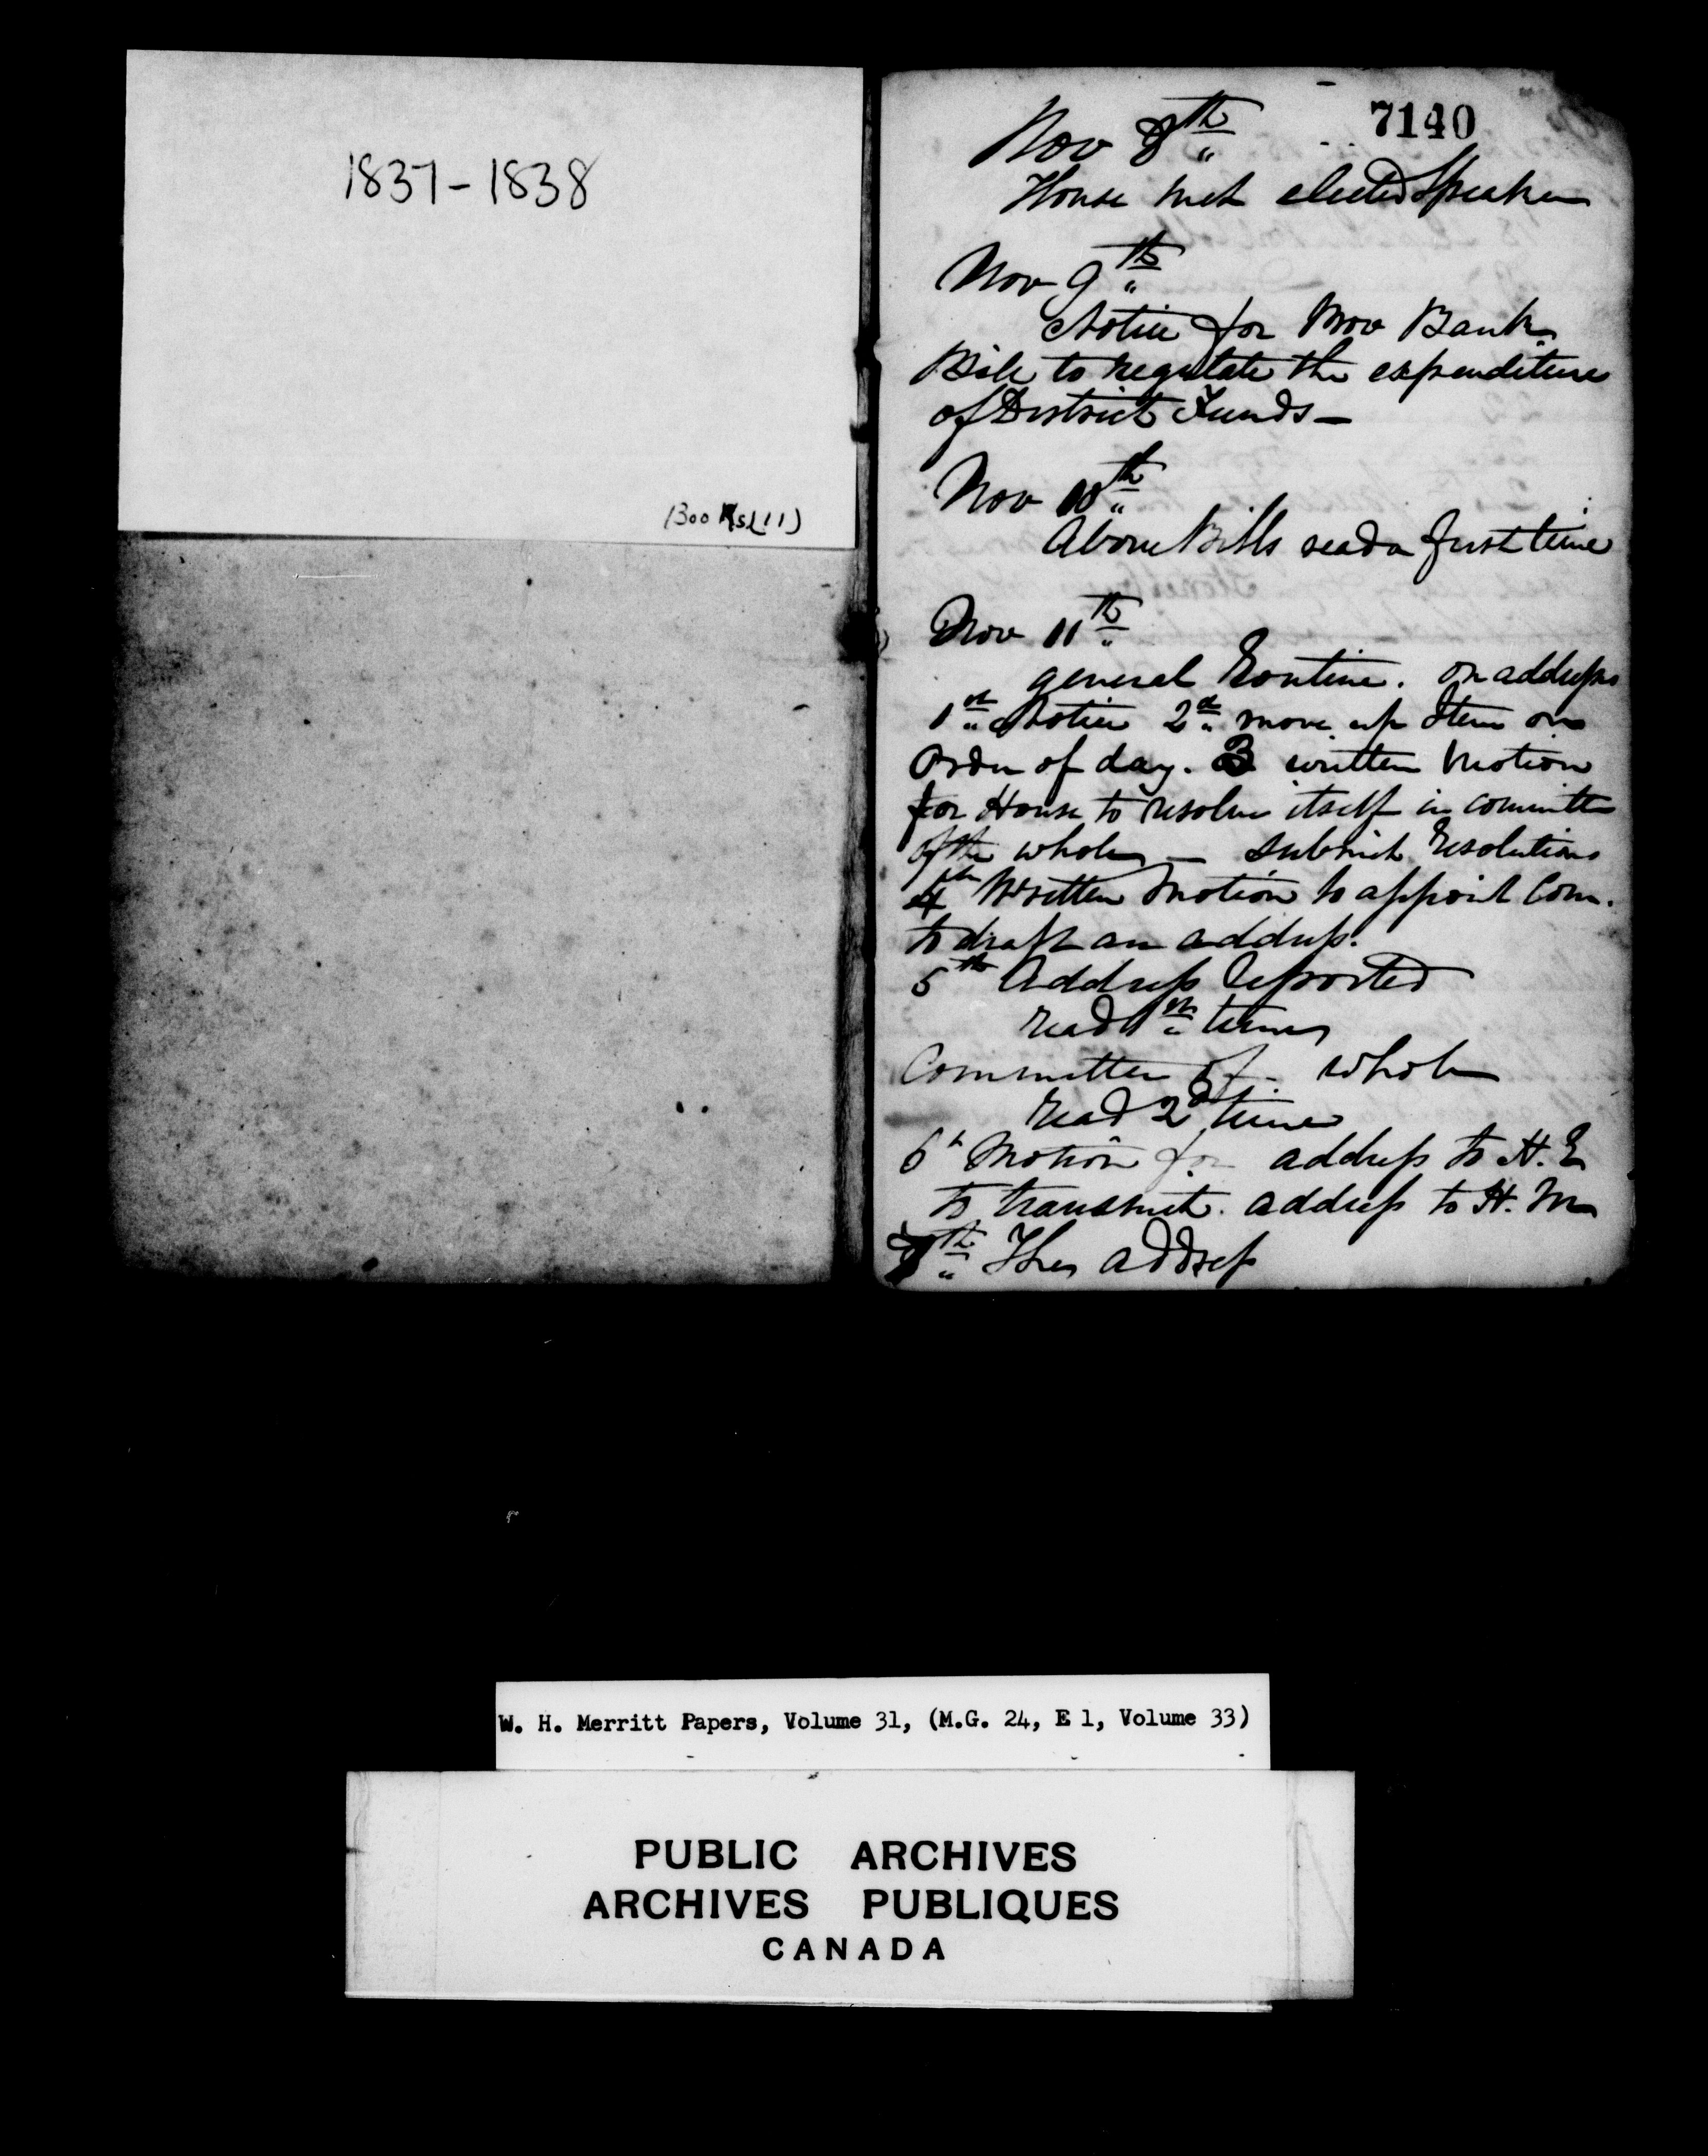 1837-1838
7140
Nov 8th
House met elected Speaker
Nov 9th
Notice for Prov Bank
Bill to regulate the expenditure
of District Funds —
Nov 10th
Above Bills read a first time
Nov 11th
general Routine. on address
1st Notice 2d move up Item on
Order of day. 3 written Motion
for House to resolve itself in committee
of the whole — submit Resolutions
4th Written Motion to appoint Com.
to draft an address.
5th Address Reported
read 1st time
Committee of whole
read 2d time
6th Motion for address to H. E
to transmit. address to H. M
7th The address
W. H. Merritt Papers, Volume 31, (M.G. 24, E 1, Volume 33)
PUBLIC ARCHIVES
ARCHIVES PUBLIQUES
CANADA